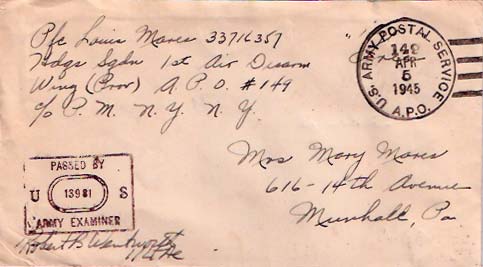 Pfc Louis Mares 33716357
Hdqs Sqdn 1st Air Disarm
Wing (Prov) A.P.O. #149
c/o P.M. N.Y. N.Y.
U.S. ARMY POSTAL SERVICE
149
APR
5
1945
A.P.O.
Mrs Mary Mares
616-14th Avenue
Munhall, Pa
PASSED BY
U 13981 S
ARMY EXAMINER
Robert B